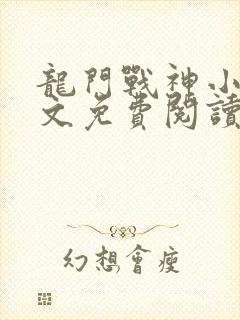 龍門戰神小
文免費閱讀
幻想會瘦